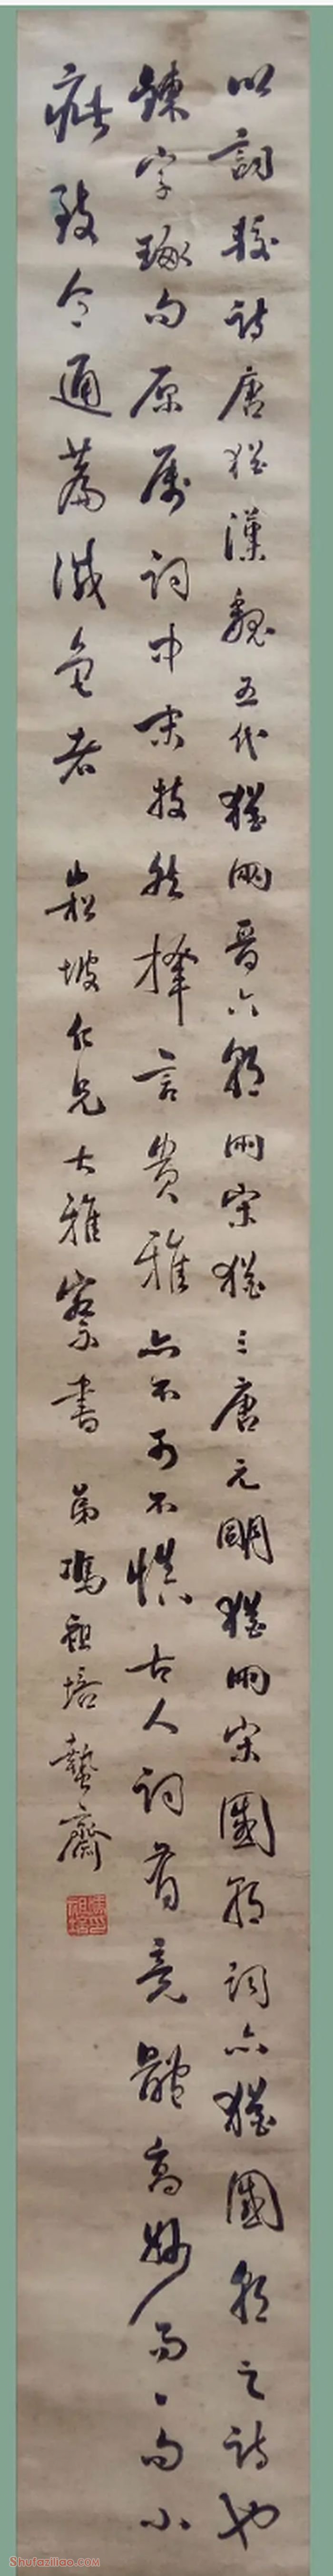 以詞較詩唐猶漢魏五代猶兩晉六朝兩宋猶三唐元明猶兩宋國朝詞亦猶國朝之詩也
鍊字琢句原屬詞中末技然擇言貴雅亦不可不慎古人詞有竟體高妙而一句小
疵致令通篇減色者 崧坡仁兄大雅察書 弟馮祖培蟄齋
Shufaziliao.com